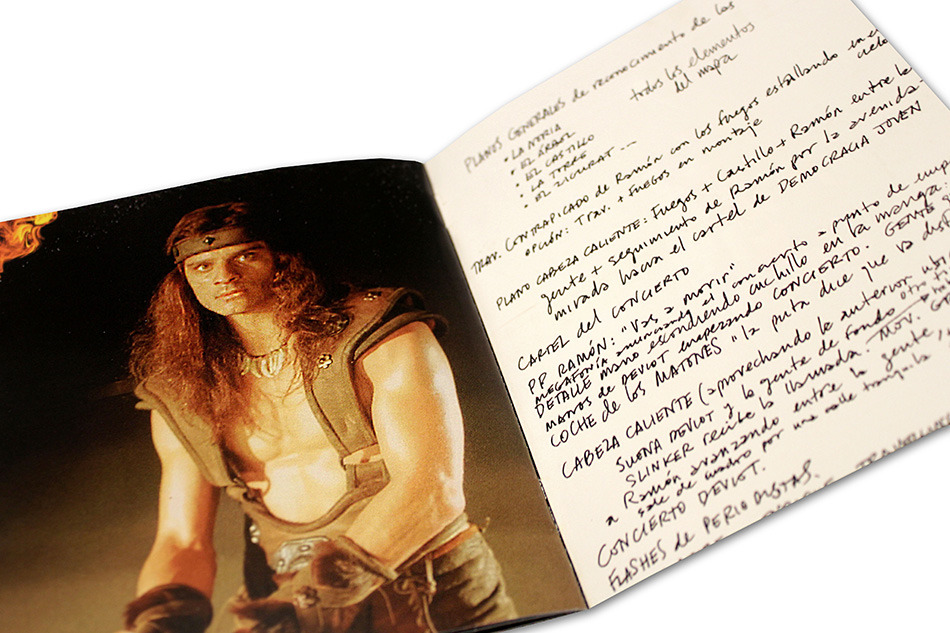 PLANOS GENERALES de reconocimiento de los
todos los elementos
del mapa
• LA NORIA
• EL ÁRBOL
• EL CASTILLO
• LA TORRE
• EL ZIGURAT ---
TRAV. CONTRAPICADO de Ramón con los fuegos estallando en el
cielo
• OPCIÓN: Trav. + fuegos en montaje
PLANO CABEZA CALIENTE: Fuegos + Castillo + Ramón entre la
gente + seguimiento de Ramón por la avenida.
mirada hacia el cartel de DEMOCRACIA JOVEN
CARTEL del CONCIERTO
PP RAMÓN: "Vas a morir"
MEGAFONÍA anunciando el concierto a punto de
DETALLE mano escondiendo cuchillo en la manga
manos de DEVLOT empezando CONCIERTO. GENTE
COCHE de los MATONES "la puta dice que va
CABEZA CALIENTE (aprovechando la anterior
SUENA DEVLOT y la gente de fondo otro
SLINKER recibe la llamada. MOV.
a Ramón avanzando entre la gente
sale de cuadro por una calle tranquila
CONCIERTO DEVLOT.
FLASHES de PERIODISTAS.